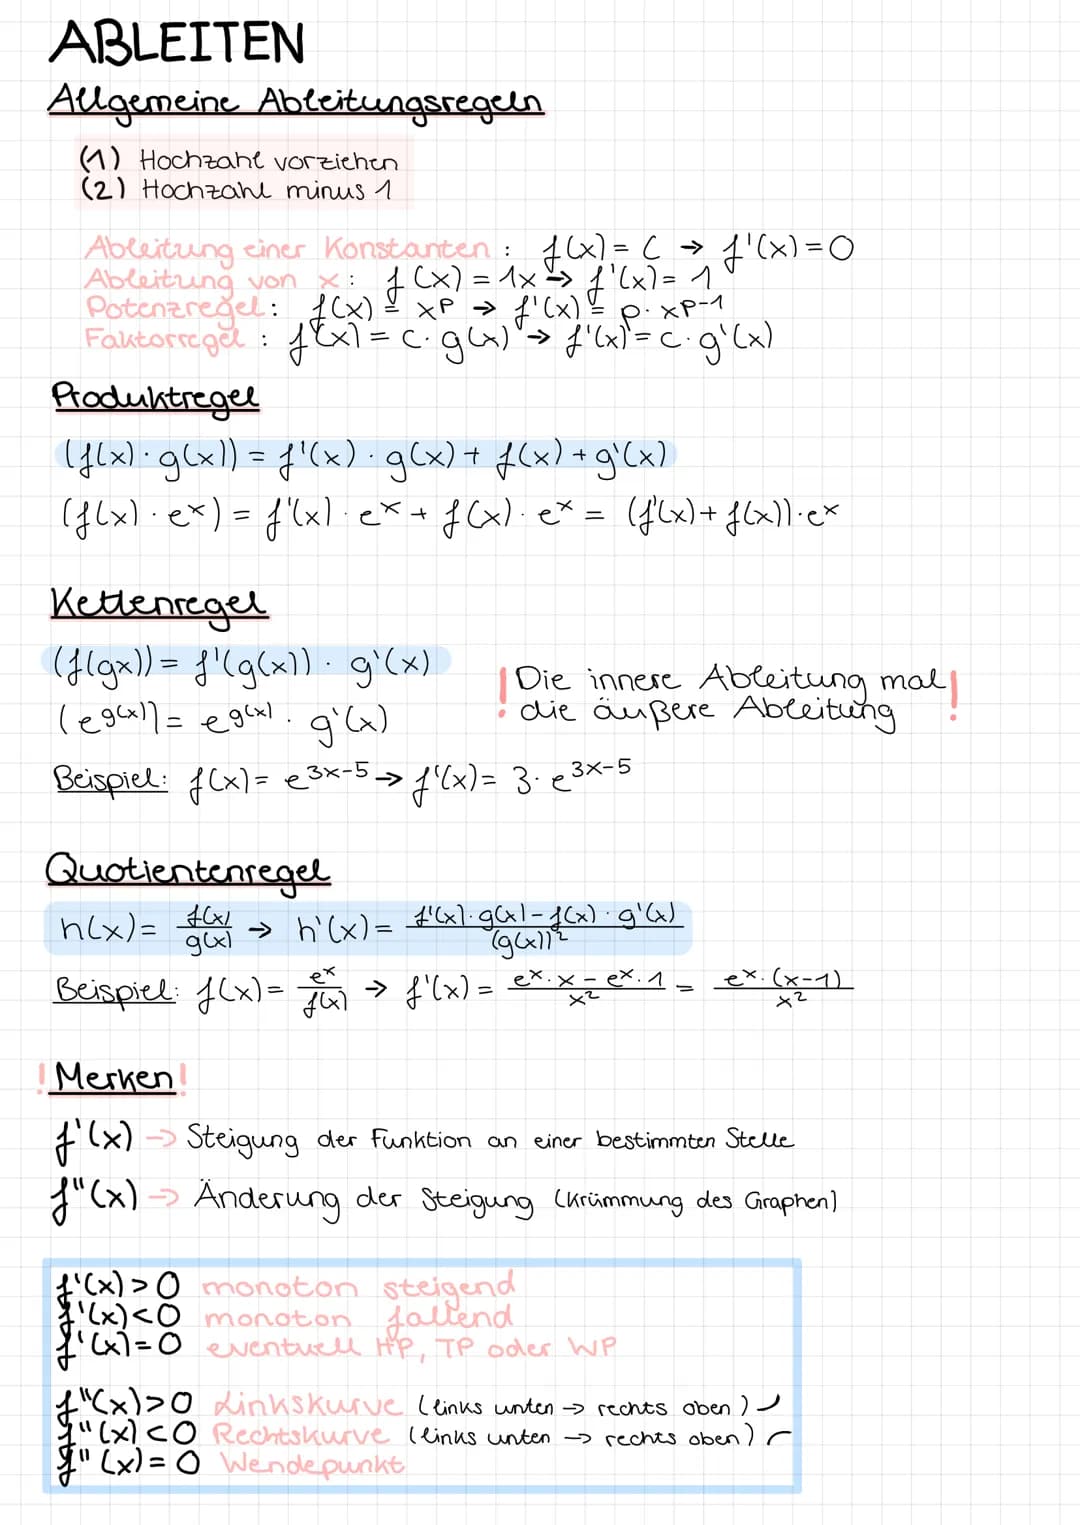 ABLEITEN
Allgemeine Ableitungsregeln
(1) Hochzahl vorziehen
(2) Hochzahl minus 1
Ableitung einer Konstanten : f(x) = C → f'(x) = 0
Ableitung von x : f(x) = 1x → f'(x) = 1
Potenzregel : f(x) = x^p → f'(x) = p · x^p-1
Faktorregel : f(x) = c · g(x) → f'(x) = c · g'(x)
Produktregel
(f(x) · g(x)) = f'(x) · g(x) + f(x) + g'(x)
(f(x) · e^x) = f'(x) · e^x + f(x) · e^x = (f'(x) + f(x)) · e^x
Kettenregel
(f(gx)) = f'(g(x)) · g'(x)
! Die innere Ableitung mal !
die äußere Ableitung
(e^g(x)) = e^g(x) · g'(x)
Beispiel: f(x) = e^3x-5 → f'(x) = 3 · e^3x-5
Quotientenregel
h(x) = f(x)/g(x) → h'(x) = f'(x) · g(x) - f(x) · g'(x)/(g(x))²
Beispiel: f(x) = e^x/f(x) → f'(x) = e^x · x - e^x · 1/x² = e^x · (x-1)/x²
! Merken !
f'(x) → Steigung der Funktion an einer bestimmten Stelle
f"(x) → Änderung der Steigung (Krümmung des Graphen)
f'(x) > 0 monoton steigend
f'(x) < 0 monoton fallend
f'(x) = 0 eventuell HP, TP oder WP
f"(x) > 0 Linkskurve (links unten → rechts oben)
f"(x) < 0 Rechtskurve (links unten → rechts oben)
f"(x) = 0 Wendepunkt